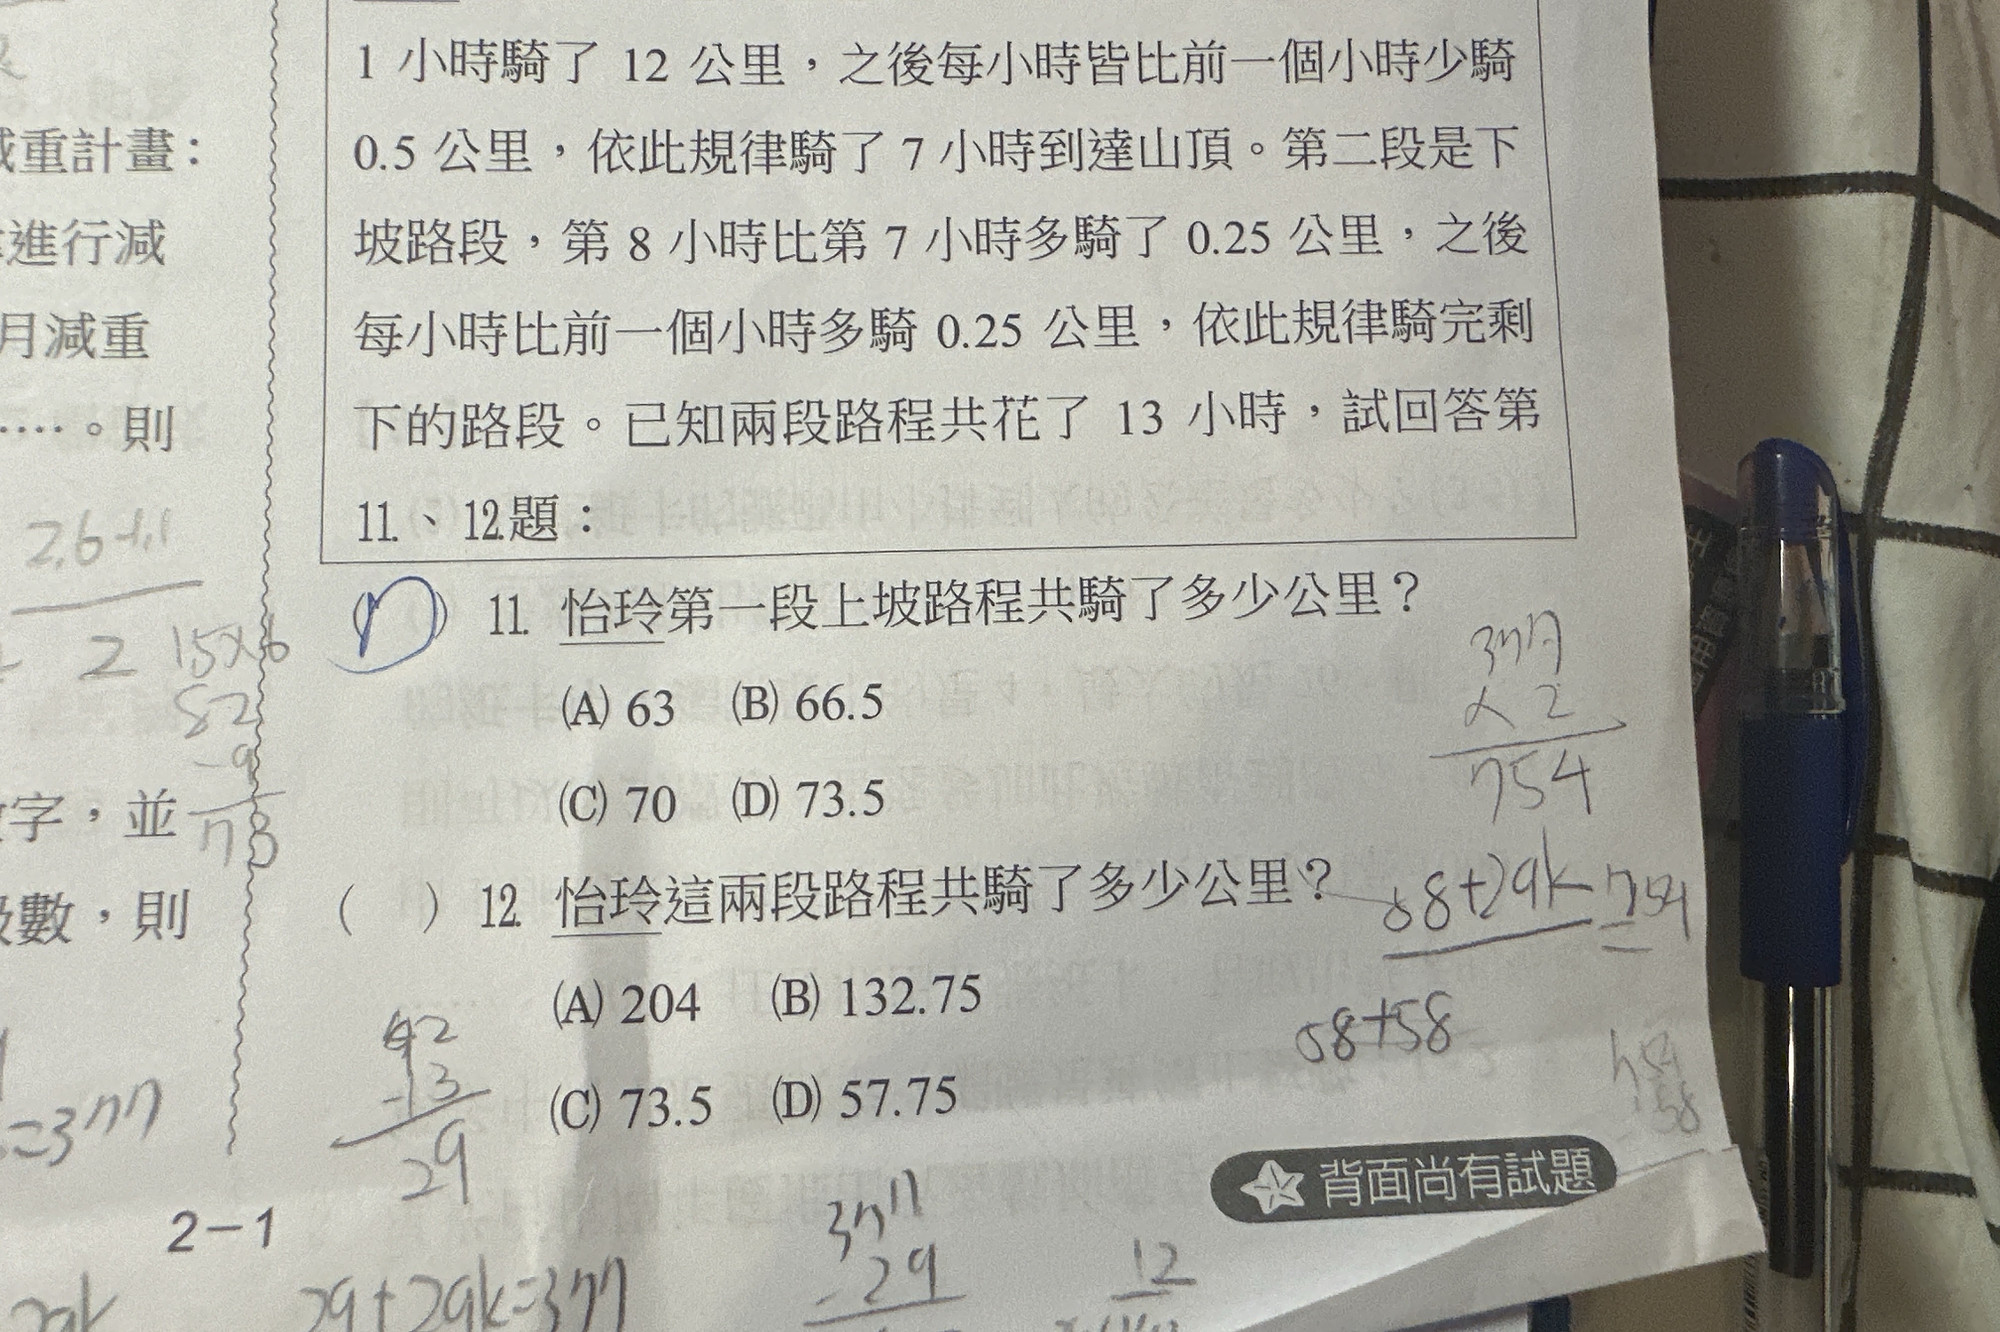 減重計畫：
進行減
月減重
……。則
2.6-1.1
2
15×6
82
-9
73
字，並
級數，則
=377
2-1
29k
1 小時騎了 12 公里，之後每小時皆比前一個小時少騎
0.5 公里，依此規律騎了 7 小時到達山頂。第二段是下
坡路段，第 8 小時比第 7 小時多騎了 0.25 公里，之後
每小時比前一個小時多騎 0.25 公里，依此規律騎完剩
下的路段。已知兩段路程共花了 13 小時，試回答第
11.、12.題：
( ) 11. 怡玲第一段上坡路程共騎了多少公里？
(A) 63 (B) 66.5
(C) 70 (D) 73.5
( ) 12. 怡玲這兩段路程共騎了多少公里？
(A) 204 (B) 132.75
(C) 73.5 (D) 57.75
377
×2
754
58+29k=754
58+58
754
-58
42
-13
29
背面尚有試題
29+29k=377
377
-29
12